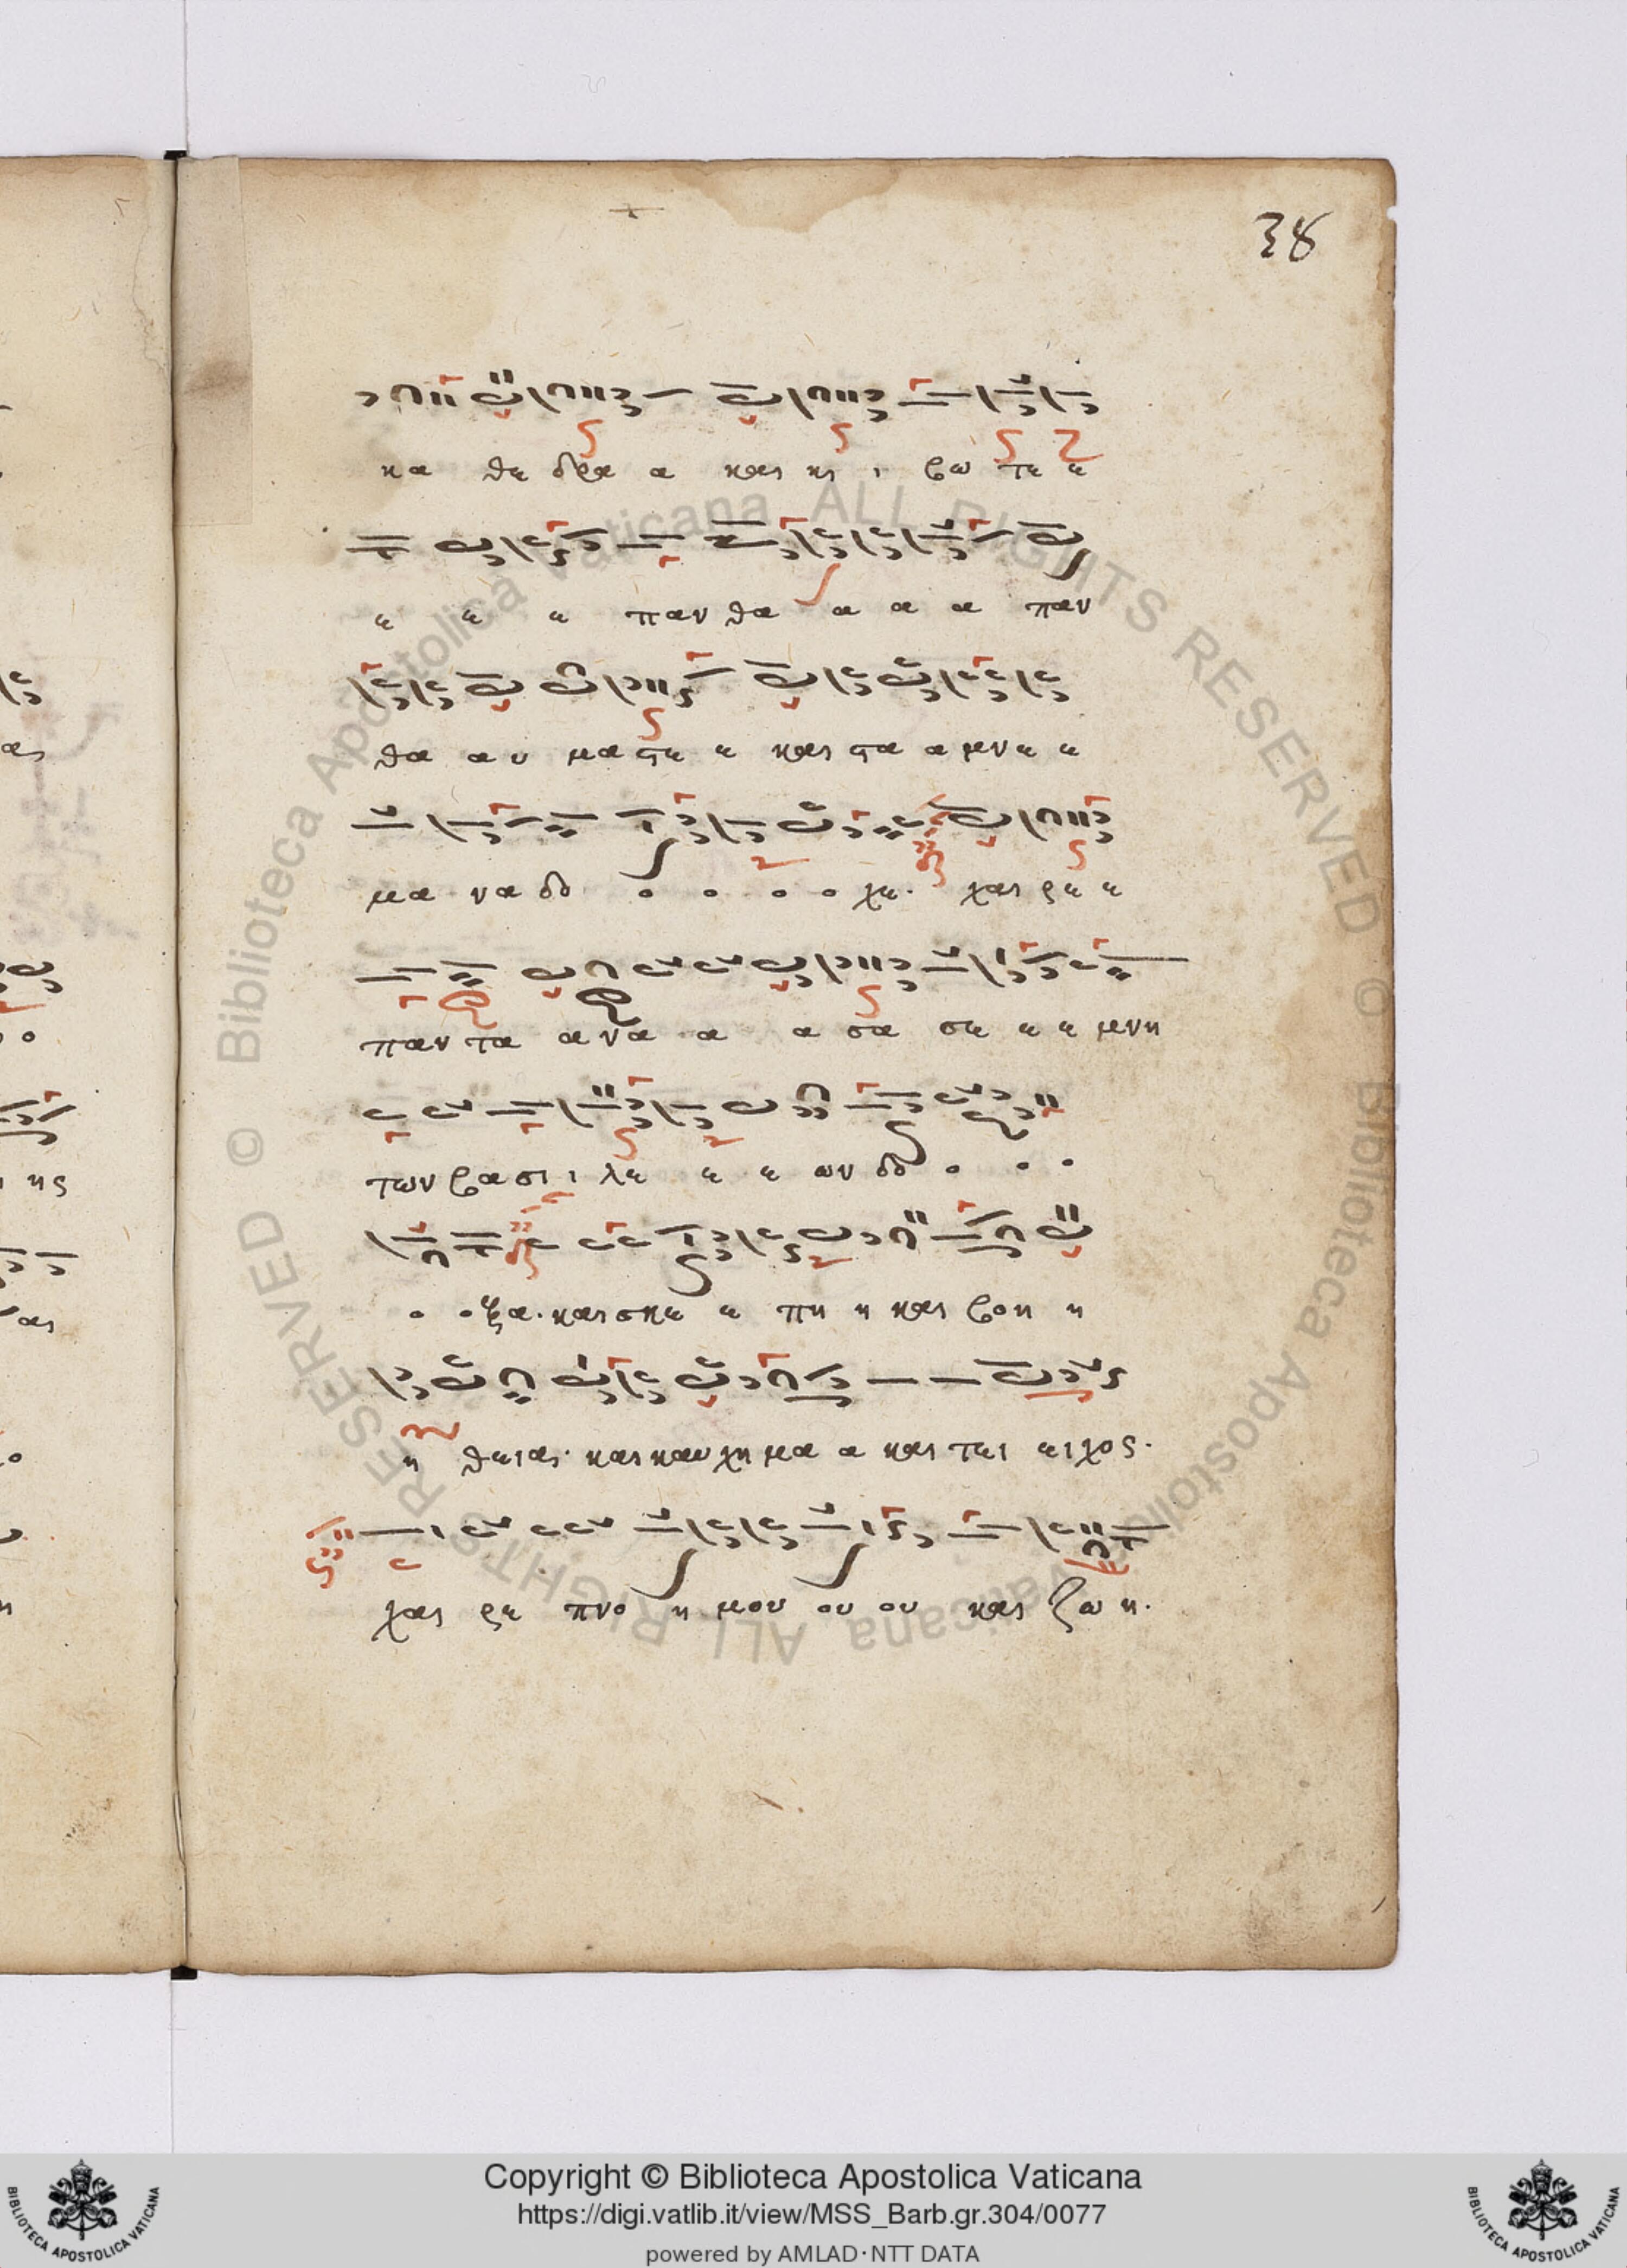 38
κα θε δρα α και κι ι βω τε ε
ε ε ε παν θα α α α παν
θα αυ μα στε ε και στα α μνε ε
μα να δο ο ο ο ο χε. χαι ρε ε
παν τα ανα α α σα σε ε ε μνη
των βα σι ι λε ε ε ων δο ο ο ο
ο ο ξα. και σκε ε πη η και βοη η
η θει αι. και καυ χη μα α και τει ει χος.
χαι ρε πνο η μου ου ου και ζω η.
© Biblioteca Apostolica Vaticana ALL RIGHTS RESERVED
© Biblioteca Apostolica Vaticana ALL RIGHTS RESERVED
Copyright © Biblioteca Apostolica Vaticana
https://digi.vatlib.it/view/MSS_Barb.gr.304/0077
powered by AMLAD·NTT DATA
BIBLIOTECA APOSTOLICA VATICANA
BIBLIOTECA APOSTOLICA VATICANA